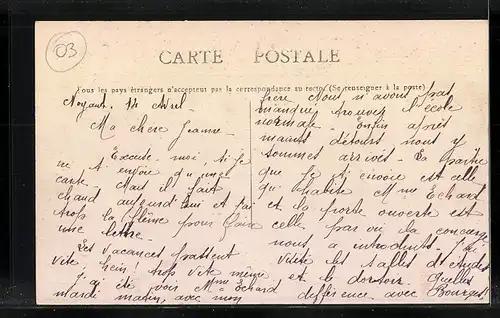 03
CARTE POSTALE
Tous les pays étrangers n'acceptent pas la correspondance au recto. (Se renseigner à la poste)
Noyant. 14 Avril
Ma chère Jeanne
Excuse-moi, si je
ne t'envoie qu'une
carte. Mais il fait
chaud aujourd'hui et j'ai
trop la flême pour faire
une lettre.
Les vacances passent
vite hein! trop vite même
J'ai été voir Mme Echard
mardi matin, avec mon
frère Nous n'avons pas
manqué trouver l'école
normale. Enfin après
maints détours nous y
sommes arrivés. La partie
que je t'envoie est celle
qu'habite Mme Echard
et la porte ouverte est
celle par où la concierge
nous a introduits. J'ai
visité les salles d'études
et le dortoir. Quelle
différence avec Bourges!